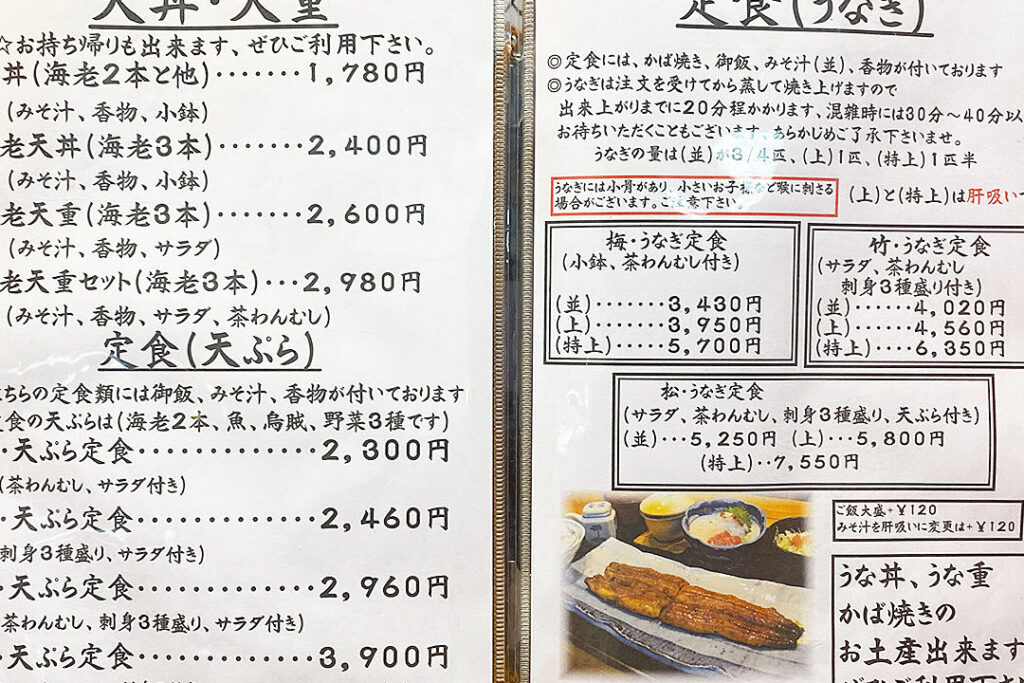 天丼・天重
☆お持ち帰りも出来ます、ぜひご利用下さい。
丼(海老2本と他)・・・・・・・1,780円
(みそ汁、香物、小鉢)
老天丼(海老3本)・・・・・・・2,400円
(みそ汁、香物、小鉢)
老天重(海老3本)・・・・・・・2,600円
(みそ汁、香物、サラダ)
老天重セット(海老3本)・・・2,980円
(みそ汁、香物、サラダ、茶わんむし)
定食(天ぷら)
ちらの定食類には御飯、みそ汁、香物が付いております
定食の天ぷらは(海老2本、魚、烏賊、野菜3種です)
・天ぷら定食・・・・・・・・・・・・・2,300円
(茶わんむし、サラダ付き)
・天ぷら定食・・・・・・・・・・・・・2,460円
刺身3種盛り、サラダ付き)
・天ぷら定食・・・・・・・・・・・・・2,960円
茶わんむし、刺身3種盛り、サラダ付き)
・天ぷら定食・・・・・・・・・・・・・3,900円
定食(うなぎ)
◎定食には、かば焼き、御飯、みそ汁(並)、香物が付いております
◎うなぎは注文を受けてから蒸して焼き上げますので
出来上がりまでに20分程かかります、混雑時には30分～40分以
お待ちいただくこともございます、あらかじめご了承下さいませ。
うなぎの量は(並)が3/4匹、(上)1匹、(特上)1匹半
うなぎには小骨があり、小さいお子様など喉に刺さる
場合がございます。ご注意下さい。
(上)と(特上)は肝吸い
梅・うなぎ定食
(小鉢、茶わんむし付き)
(並)・・・・・・・3,430円
(上)・・・・・・・3,950円
(特上)・・・・・5,700円
竹・うなぎ定食
(サラダ、茶わんむし
刺身3種盛り付き)
(並)・・・・・・4,020円
(上)・・・・・・4,560円
(特上)・・・・6,350円
松・うなぎ定食
(サラダ、茶わんむし、刺身3種盛り、天ぷら付き)
(並)・・・5,250円 (上)・・・5,800円
(特上)・・7,550円
ご飯大盛+￥120
みそ汁を肝吸いに変更は+￥120
うな丼、うな重
かば焼きの
お土産出来ます
ぜひご利用下さい